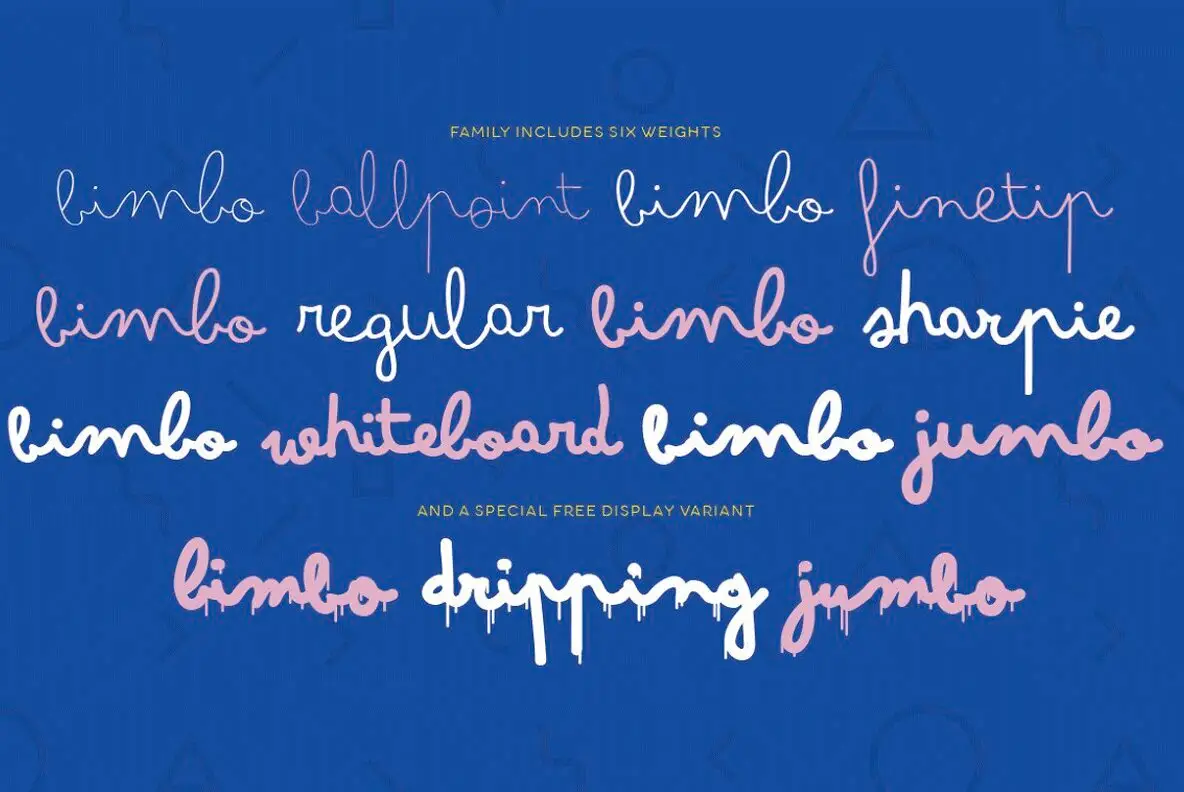 FAMILY INCLUDES SIX WEIGHTS
bimbo ballpoint bimbo finetip
bimbo regular bimbo sharpie
bimbo whiteboard bimbo jumbo
AND A SPECIAL FREE DISPLAY VARIANT
bimbo dripping jumbo